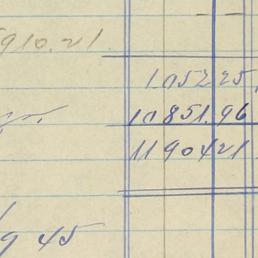 910.21
105225
10851.96
1190421
9 45